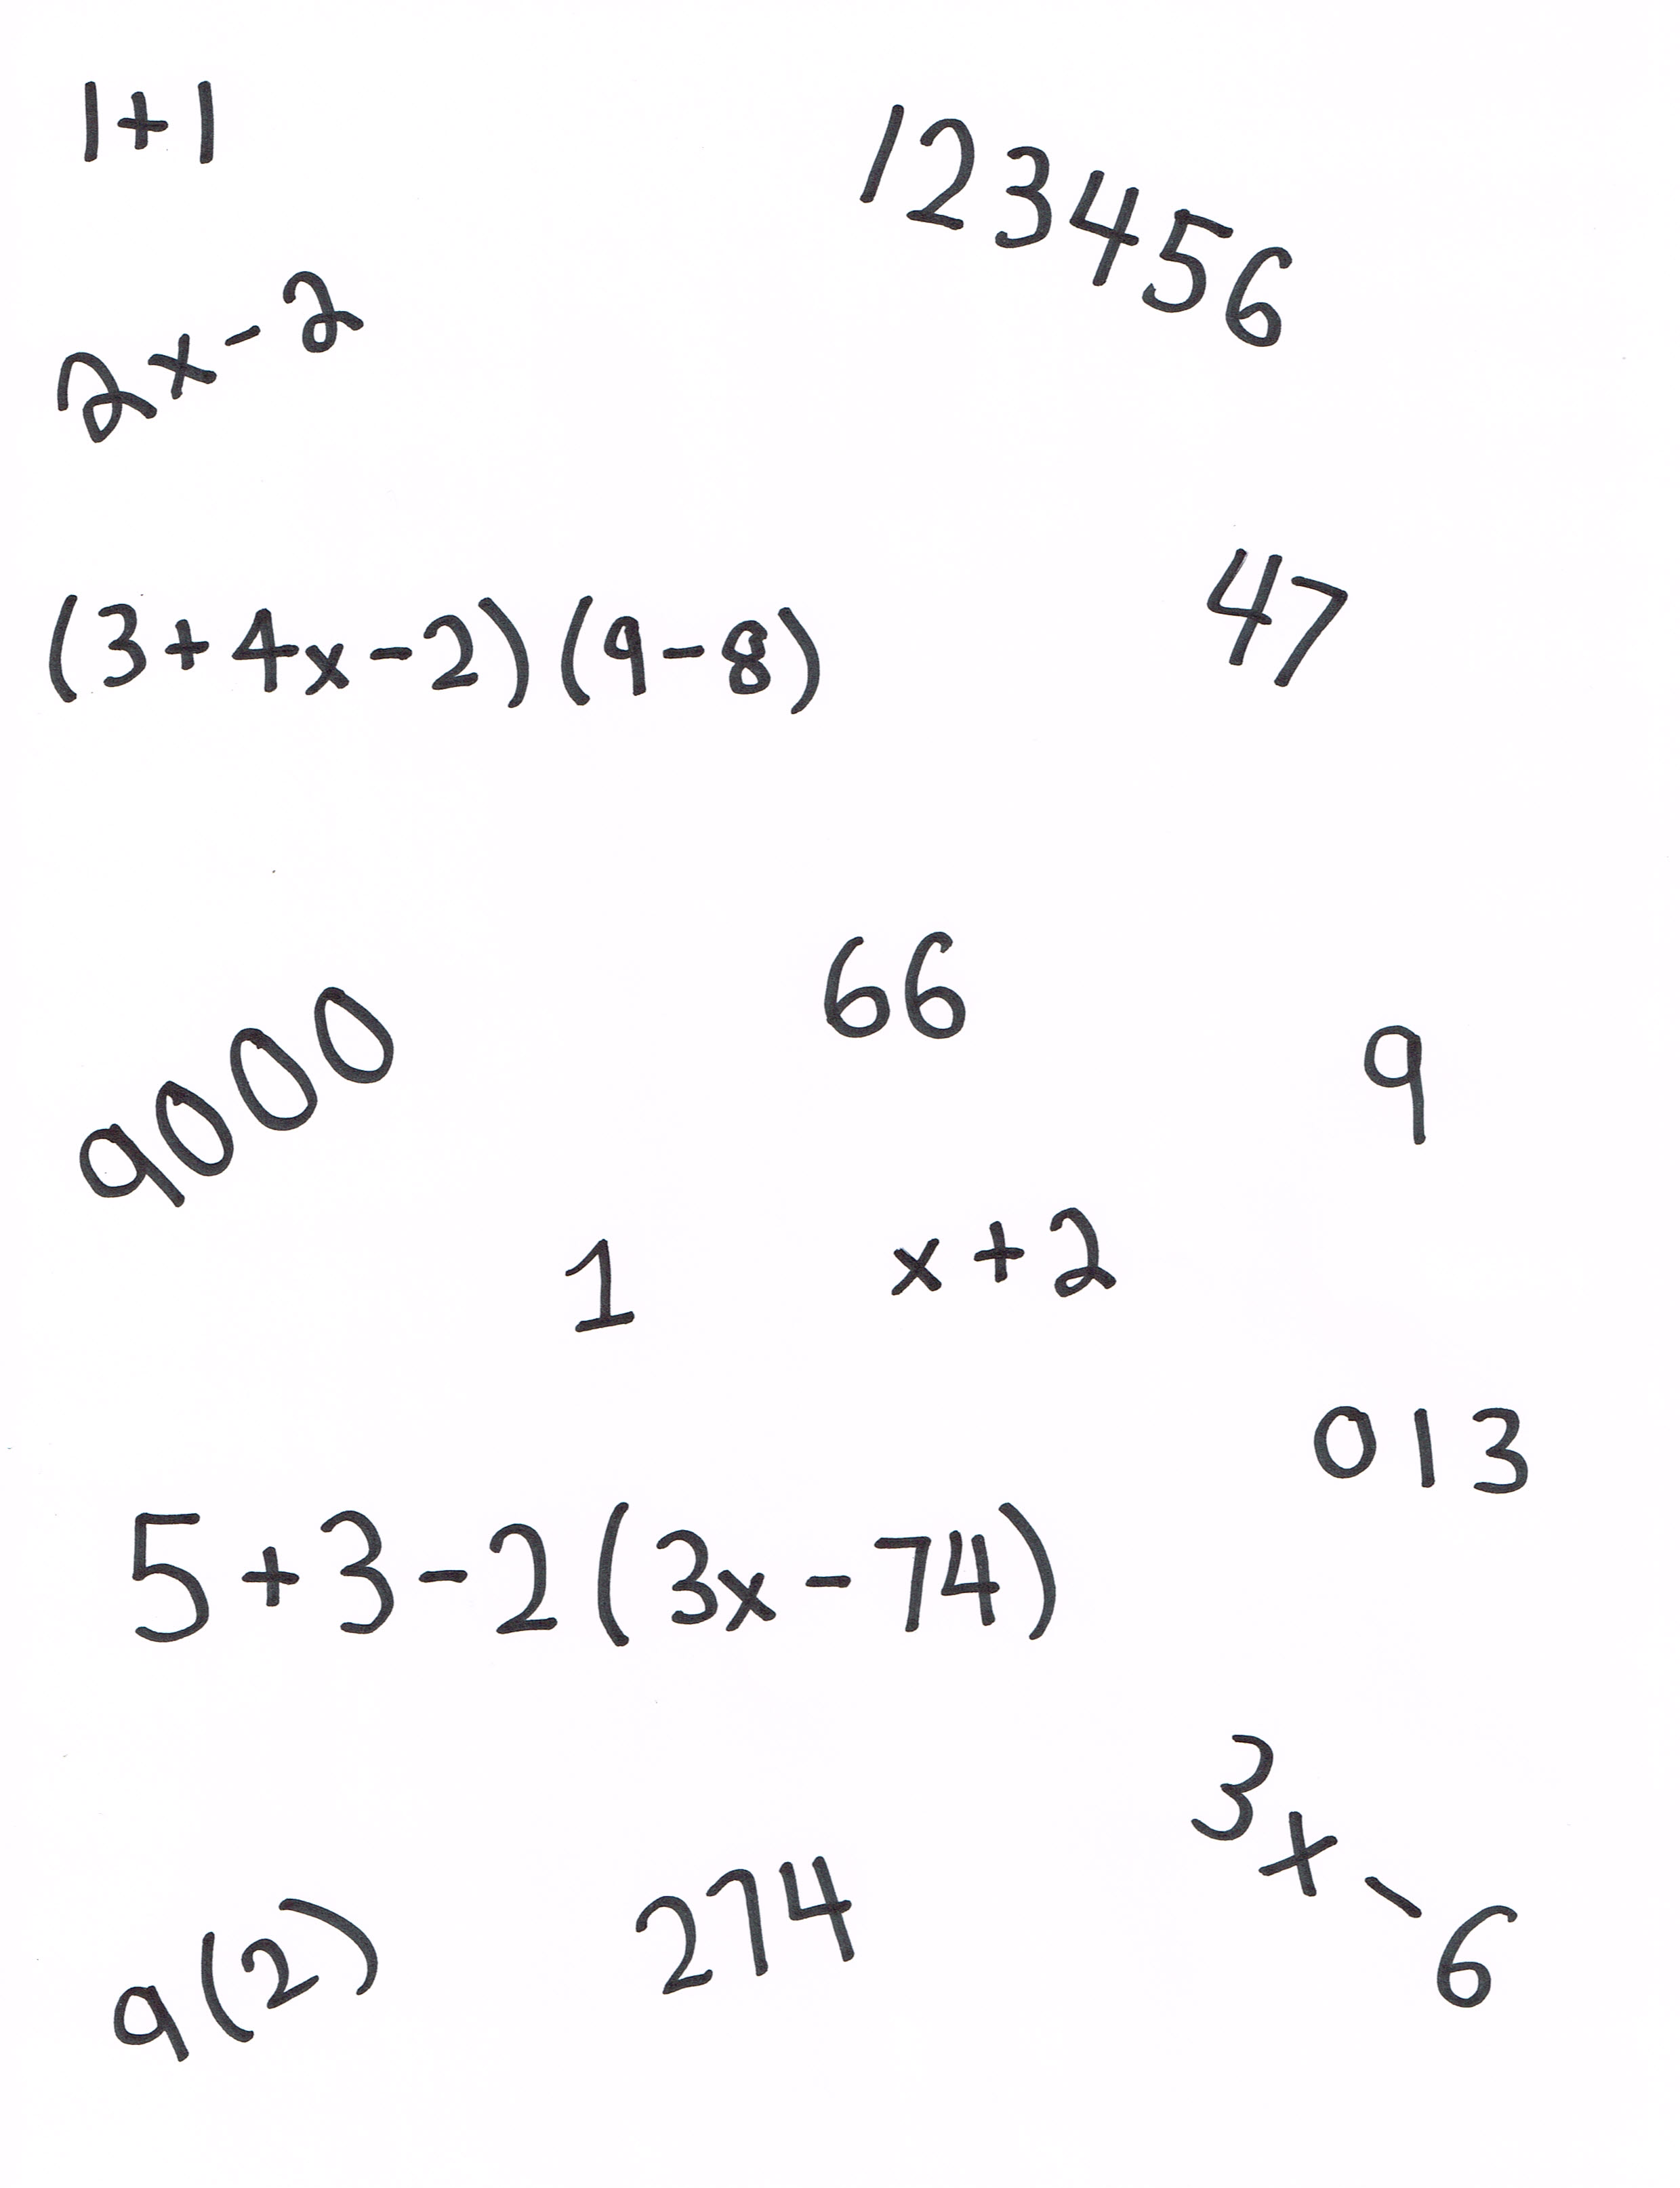 1+1
123456
2x-2
(3+4x-2)(9-8)
47
66
9000
9
1
x+2
013
5+3-2(3x-74)
3x-6
274
9(2)